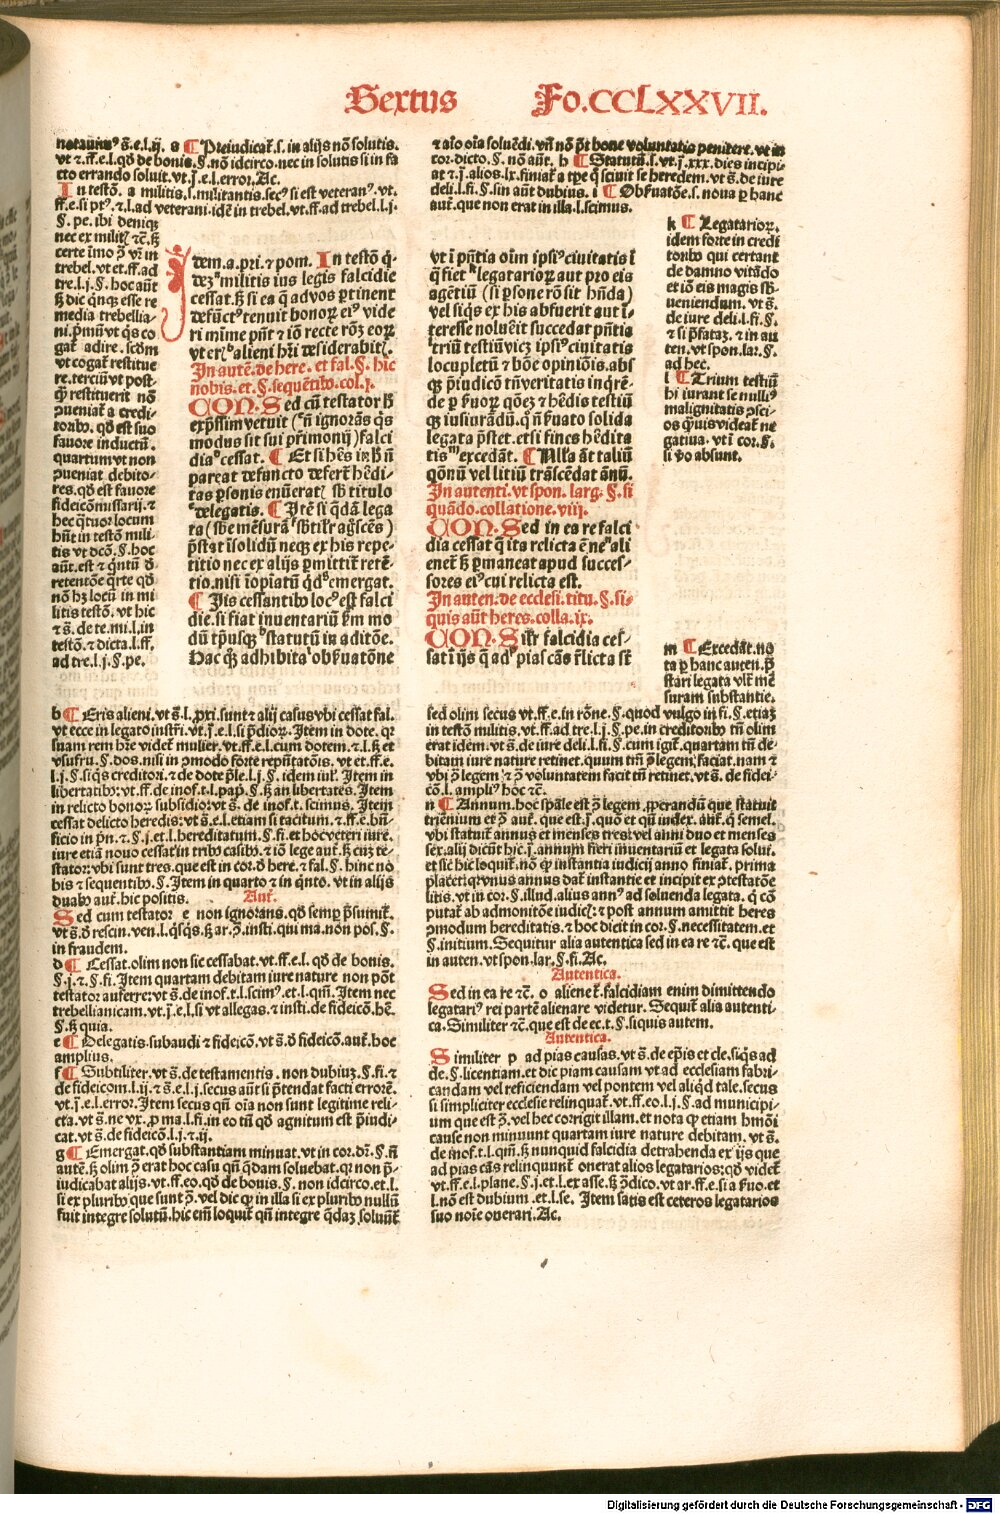 Sextus Fo.CCLXXVII.
notauimꝰ s̄.e.l.ij. a ¶ Preiudicat᷑.s. in alijs nō solutis.
vt ⁊.ff.e.l.qđ de bonis.§.nō idcirco.nec in solutis si in fa
cto errando soluit.vt.j̄.e.l.error.Ac.
In testō. a militis.s.militantis.secꝰ si est veteranꝰ.vt.
ff.e.si ptꝰ.⁊.l.ad veterani.idē in trebel.vt.ff.ad trebel.l.j.
§.pe.ibi deniqꝫ
certe īmo ꝯ̄ vr̄ in
trebel.vt et.ff.ad
tre.l.j.§.hoc aūt
media trebellia-
gat᷑ adire.scōm
vt cogat᷑ restitue
re.terciū vt post-
qꝫ restituerit nō
ꝓueniat a credi-
torib9.qđ est suo
fauore inductū.
quartum vt non
ꝓueniat debito-
res.qđ est fauore
fideicōmissarij.⁊
hec q̄tuor locum
hn̄t in testō mili-
tis vt dcō.§.hoc
aūt.est ⁊ q̄ntū đ
retentōe q̄rte qđ
nō hꝫ locū in mi
litis testō.vt hic
⁊ s̄.de te.mi.l.in
testō.⁊ dicta.l.ff.
ad tre.l.j.§.pe.
Idem.a.pri.⁊ pom. In testō q̄-
dēꝫ militis ius legis falcidie
cessat.sꝫ si ea q̄ advos ꝑtinent
defunctꝰ tenuit bonoꝝ eiꝰ vide
ri mime pn̄t ⁊ iō recte rōꝫ eoꝝ
vt erꝭ alieni hr̄i desiderabit᷑.
In autē.de here.et fal.§.hic
nobis.et.§.sequētib9.col.j.
NON.Sed cū testator ħ
expssim vetuit (ꝰn̄ ignorās qs̄
modus sit sui prīmonij) falci
dia cessat. ¶ Et si hēs īꝫ ħ n̄
pareat defuncto defert᷑ hēdi-
tas ꝑsonis enūerat᷑ sb titulo
delegatis. ¶ Itē si qdā lega
ta (sbe mēsurā sbtilꝛ aḡscēs)
pstat īsolidū neqꝫ ex his repe-
titio nec ex alijs ꝑmittit᷑ retē-
tio.nisi īopiatū qđ emergat.
¶ Jis cessantib9 locꝰ est falci
die.si fiat inuentariū ꝯm mo
dū tp̄usqꝫ statutū in aditōe.
Hac qꝫ adhibita obẜuatōne
b ¶ Eris alieni.vt s̄.l.ꝓxi.sunt ⁊ alij casus vbi cessat fal.
vt ecce in legato instr̄i.vt.j̄.e.l.si p̄dioꝝ.Item in dote.qꝛ
suam rem hr̄e videt᷑ mulier.vt.ff.e.l.cum dotem.⁊.l.sꝫ et
vsufru.§.dos.nisi in ꝓmodo forte reputatōis.vt et.ff.e.
l.j.§.siqs creditori.⁊ de dote p̄le.l.j.§.idem iul᷑.Item in
libertatib9:vt.ff.de inof.t.l.pap.§.sꝫ an libertates.Item
in relicto bonoꝝ subsidio:vt s̄.de inof.t.scimus.Item
cessat delicto heredis:vt s̄.e.l.etiam si tacitum.⁊.ff.e.hn̄-
ficio in pn̄.⁊.§.j.et.l.hereditatum.§.fi.et hoc veteri iure.
iure etiā nouo cessat in trib9 casib9.⁊ iō lege aut᷑.sꝫ cuꝫ te-
stator:vbi sunt tres.que est in cor.đ here.⁊ fal.§.hinc no
bis ⁊ sequentib9.§.Item in quarto ⁊ in q̄nto.vt in alijs
duab9 aut᷑.hic positis. Aut᷑.
Sed cum testator e non ignorans.qđ semꝑ p̄sumit᷑.
vt s̄.đ rescin.ven.l.q̄sq̄s.sꝫ ar.ꝯ̄.insti.qui ma.non pos.§.
in fraudem.
d ¶ Cessat.olim non sic cessabat.vt.ff.e.l.qđ de bonis.
§.j.⁊.§.fi.Item quartam debitam iure nature non pōt
testator auferre:vt s̄.de inof.t.l.scimꝰ.et.l.qm̄.Item nec
trebellianicam.vt.j̄.e.l.si vt allegas.⁊ insti.de fideicō.he.
§.sꝫ quia.
e ¶ Delegatis.subaudi ⁊ fideicō.vt s̄.đ fideicō.aut᷑.hoc
amplius.
f ¶ Subtiliter.vt s̄.de testamentis.non dubiuꝫ.§.fi.⁊
de fideicom.l.ij.⁊ s̄.e.l.j.secus aūt si p̄tendat facti errorē.
vt.j̄.e.l.error.Item secus qn̄ oīa non sunt legitime reli-
cta.vt s̄.ne vx.ꝓ ma.l.fi.in eo tn̄ qđ agnitum est p̄iudi-
cat.vt s̄.de fideicō.l.j.⁊.ij.
g ¶ Emergat.qđ substantiam minuat.vt in cor.dr̄.§.n̄
autē.sꝫ olim ꝯ̄ erat hoc casu qn̄ q̄dam soluebat.qꝛ non p̄-
iudicabat alijs.vt.ff.eo.qđ de bonis.§.non idcirco.et.l.
si ex plurib9 que sunt ꝯ̄.vel dic qꝫ in illa si ex plurib9 nullū
fuit integre solutū.hic em̄ loquit᷑ qn̄ integre q̄daꝫ soluūt᷑
⁊ alio oīa soluēdi.vn̄ nō pt̄ bone voluntatis penitere.vt in
cor.dicto.§.nō aūt. h ¶ Statutū.s.vt.j̄.xxx.dies incipi-
at ⁊.j̄.alios.lx.finiat᷑ a tpe q̄ sciuit se heredem.vt s̄.de iure
deli.l.fi.§.sin aūt dubius. i ¶ Obẜuatōe.s.noua ꝑ hanc
aut᷑.que non erat in illa.l.scimus.
k ¶ Legatarioꝝ.
idem forte in credi
torib9 qui certant
de damno vitādo
et iō eis magis sb-
ueniendum.vt s̄.
de iure deli.l.fi.§.
⁊ si p̄fataꝫ.⁊ in au
ten.vt spon.lar.§.
ad hec.
l ¶ Trium testiū
hi iurant se nulliꝰ
malignitatis ꝯsci-
os q̄uis videat᷑ ne
gatiua.vt ī cor.§.
si ꝟo absunt.
vt ī pn̄tia oīm ipsiꝰ ciuitatis ī
q̄ fiet legatarioꝝ aut pro eis
agētiū (si ꝑsone rō sit hn̄da)
vel siqs ex his abfuerit aut ī-
teresse noluēit succedat pn̄tia
triū testiū vicꝫ ipsiꝰ ciuitatis
locupletū ⁊ bōe opiniōis.abs
qꝫ p̄iudicō tn̄ veritatis inqrē-
de ꝑ ẜuoꝝ qōeꝫ ⁊ hēdis testiū
qꝫ iusiurādū.q̄ n̄ ẜuato solida
legata p̄stet.etsi fines hēdita
tis excedāt. ¶ Nlla āt taliū
qōnū vel litiū trāscēdat ānū.
In autenti.vt spon.larg.§.si
quādo.collatione.viij.
NON.Sed in ea re falci
dia cessat q̄ ita relicta ē ne ali
enet᷑ sꝫ ꝑmaneat apud succes-
sores eiꝰ cui relicta est.
In auten.de ecclesi.titu.§.si-
quis aūt heres.colla.ix.
NON.Silꝛ falcidia ces-
sat ī ijs q̄ ad pias cās r̄licta st̄
m ¶ Excedāt.no
ta ꝑ hanc auten.p̄
stari legata vlt᷑ mē
suram substantie.
sed olim secus vt.ff.e.in rōne.§.quod vulgo in fi.§.etiaꝫ
in testō militis.vt.ff.ad tre.l.j.§.pe.in creditorib9 tn̄ olim
erat idem.vt s̄.de iure deli.l.fi.§.cum igit᷑.quartam tn̄ de-
bitam iure nature retinet.quum tn̄ ꝯ̄ legem faciat.nam ⁊
vbi ꝯ̄ legem ⁊ ꝯ̄ voluntatem facit tn̄ retinet.vt s̄.de fidei-
cō.l.ampliꝰ hoc ⁊c̄.
n ¶ Annum.hoc sp̄ale est ꝯ̄ legem ꝓꝑandū que statuit
triēnium et ꝯ̄ aut᷑.que est.j̄.quo et qn̄ index.aut᷑.qꝫ semel.
vbi statuit᷑ annus et menses tres:vel anni duo et menses
sex.alij dicūt hic.j̄.annum fieri inuentariū et legata solui.
et sic hic loquit᷑.nō qꝫ instantia iudicij anno finiat᷑.prima
placet:qꝛ vnus annus dat᷑ instantie et incipit ex ꝯtestatōe
litis.vt in cor.§.illud.alius annꝰ ad soluenda legata.q̄ cō
putat᷑ ab admonitōe iudicꝭ:⁊ post annum amittit heres
ꝯmodum hereditatis.⁊ hoc dicit in cor.§.necessitatem.et
§.initium.Sequitur alia autentica sed in ea re ⁊c̄.que est
in auten.vt spon.lar.§.fi.Ac.
Autentica.
Sed in ea re ⁊c̄. o alienet᷑.falcidiam enim dimittendo
legatariꝰ rei partē alienare videtur.Sequit᷑ alia autenti-
ca.Similiter ⁊c̄.que est de ec.t.§.siquis autem.
Autentica.
Similiter p ad pias causas.vt s̄.de ep̄is et cle.siq̄s ad
de.§.licentiam.et dic piam causam vt ad ecclesiam fabri-
candam vel reficiendam vel pontem vel aliqđ tale.secus
si simpliciter ecclesie relinquat᷑.vt.ff.eo.l.j.§.ad municipi-
um que est ꝯ̄.vel hec corrigit illam.et nota qꝫ etiam hmōi
cause non minuunt quartam iure nature debitam.vt s̄.
de inof.t.l.qm̄.sꝫ nunquid falcidia detrahenda ex ijs que
ad pias cās relinquunt᷑ onerat alios legatarios:qđ videt᷑
vt.ff.e.l.plane.§.j.et.l.ex asse.sꝫ ꝯdico.vt ar.ff.e.si a ẜuo.et
l.nō est dubium.et.l.se. Item satis est ceteros legatarios
suo noīe onerari.Ac.
Digitalisierung gefördert durch die Deutsche Forschungsgemeinschaft - DFG